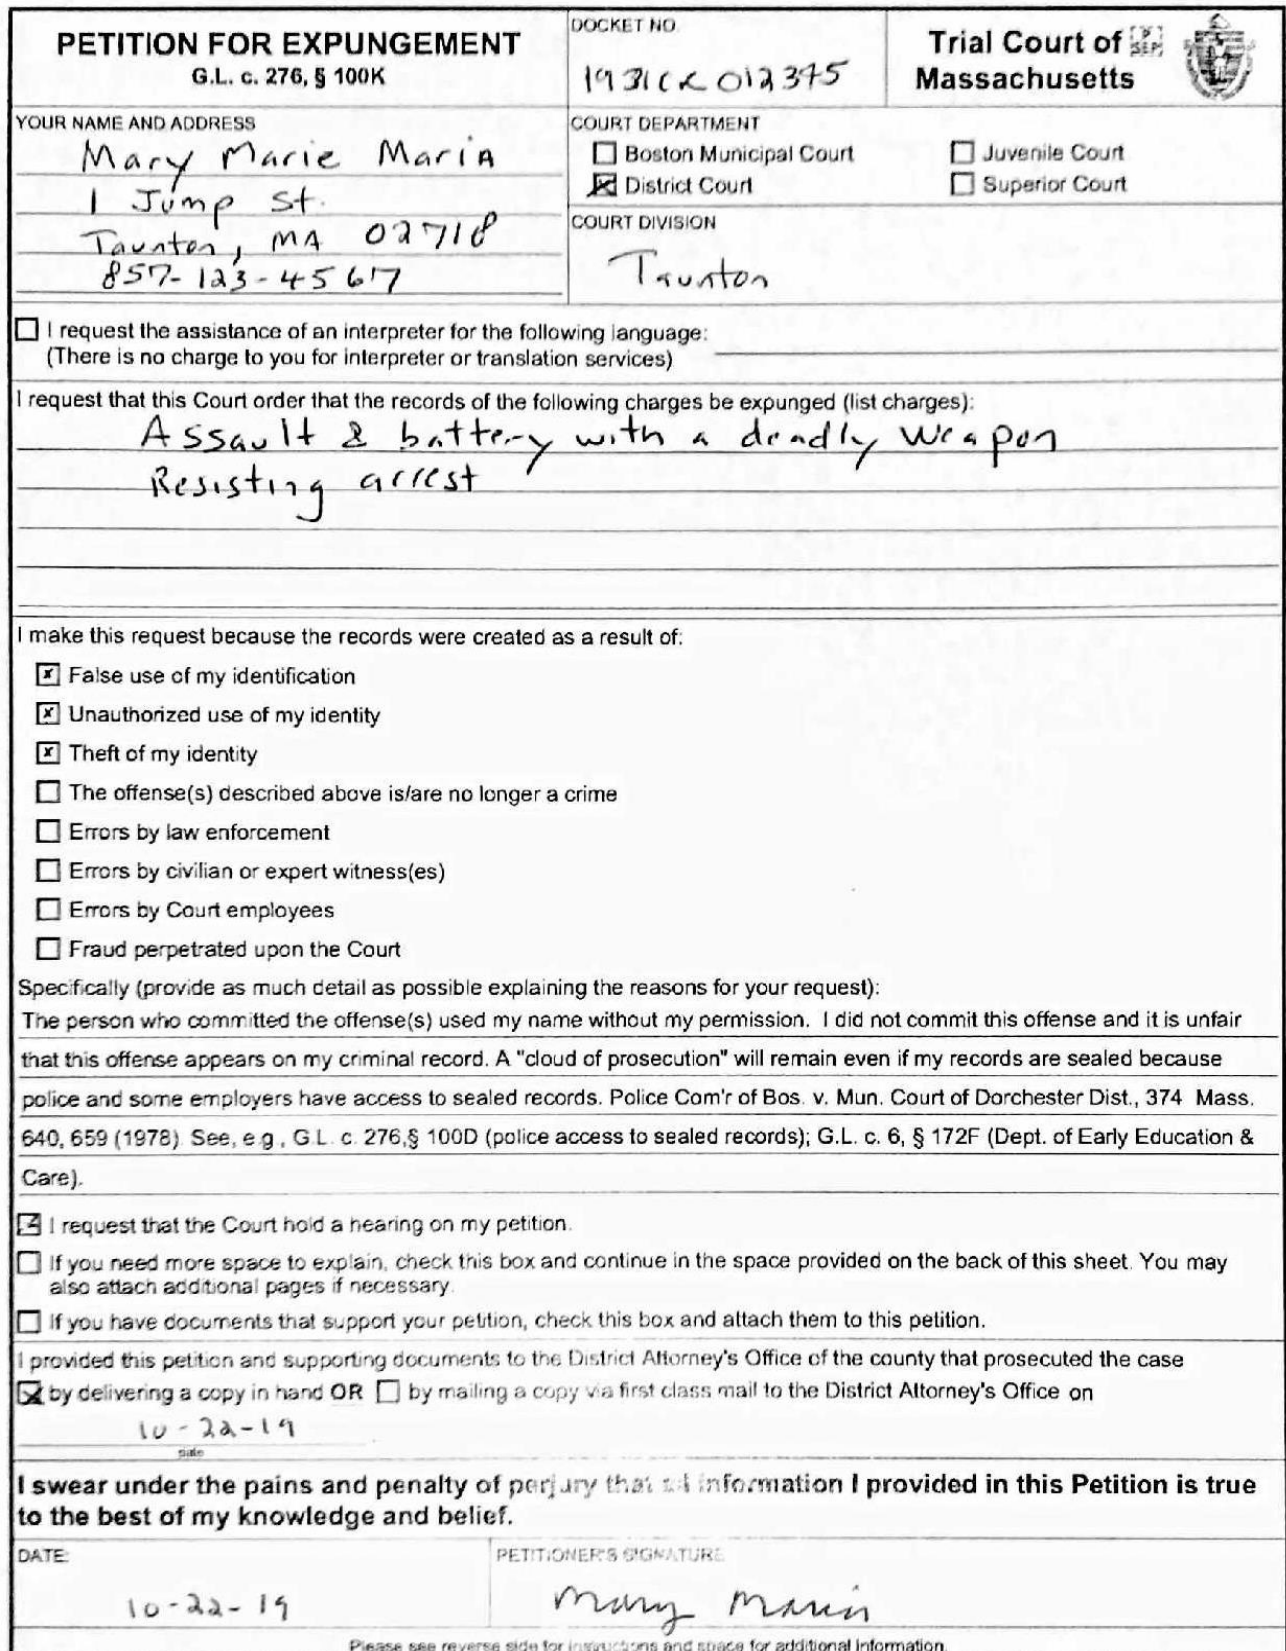 PETITION FOR EXPUNGEMENT
G.L. c. 276, § 100K
DOCKET NO.
1931CR012345
Trial Court of
Massachusetts
YOUR NAME AND ADDRESS
Mary Marie Maria
1 Jump St.
Taunton, MA 02718
857-123-4567
COURT DEPARTMENT
Boston Municipal Court
Juvenile Court
District Court
Superior Court
COURT DIVISION
Taunton
I request the assistance of an interpreter for the following language:
(There is no charge to you for interpreter or translation services)
I request that this Court order that the records of the following charges be expunged (list charges):
Assault & battery with a deadly weapon
Resisting arrest
I make this request because the records were created as a result of:
False use of my identification
Unauthorized use of my identity
Theft of my identity
The offense(s) described above is/are no longer a crime
Errors by law enforcement
Errors by civilian or expert witness(es)
Errors by Court employees
Fraud perpetrated upon the Court
Specifically (provide as much detail as possible explaining the reasons for your request):
The person who committed the offense(s) used my name without my permission. I did not commit this offense and it is unfair
that this offense appears on my criminal record. A "cloud of prosecution" will remain even if my records are sealed because
police and some employers have access to sealed records. Police Com'r of Bos. v. Mun. Court of Dorchester Dist., 374 Mass.
640, 659 (1978) See, e.g., G.L. c. 276,§ 100D (police access to sealed records); G.L. c. 6, § 172F (Dept. of Early Education &
Care).
I request that the Court hold a hearing on my petition.
If you need more space to explain, check this box and continue in the space provided on the back of this sheet. You may
also attach additional pages if necessary.
If you have documents that support your petition, check this box and attach them to this petition.
I provided this petition and supporting documents to the District Attorney's Office of the county that prosecuted the case
by delivering a copy in hand OR by mailing a copy via first class mail to the District Attorney's Office on
10-22-19
date
I swear under the pains and penalty of perjury that all information I provided in this Petition is true
to the best of my knowledge and belief.
DATE:
PETITIONER'S SIGNATURE
10-22-19
Mary Maria
Please see reverse side for instructions and space for additional information.